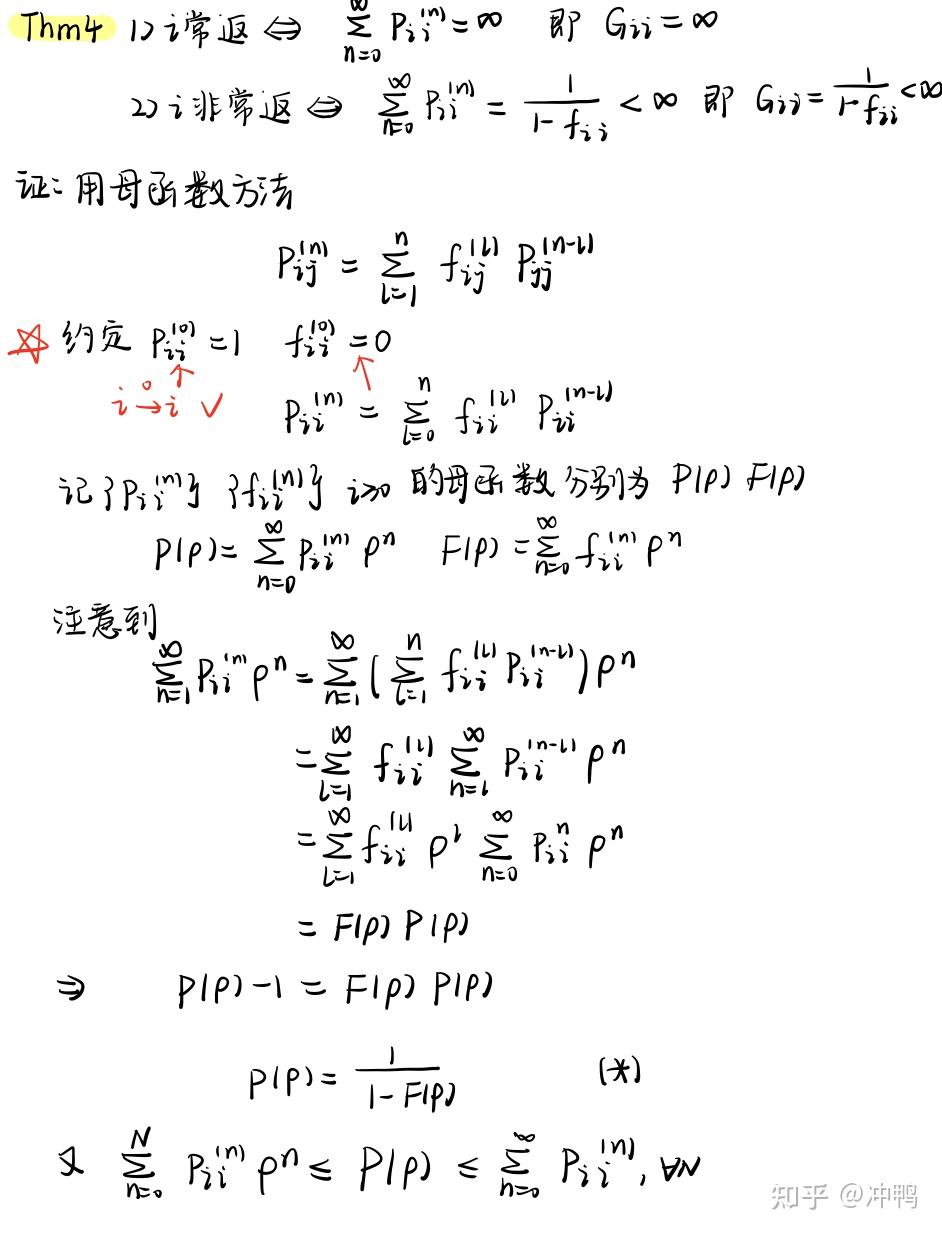 Thm4 1) i常返 ⇔ ∑_{n=0}^{∞} P_{ii}^{(n)} = ∞ 即 G_{ii} = ∞
2) i非常返 ⇔ ∑_{n=0}^{∞} P_{ii}^{(n)} = \frac{1}{1-f_{ii}} < ∞ 即 G_{ii} = \frac{1}{1-f_{ii}} < ∞
证: 用母函数方法
P_{ij}^{(n)} = ∑_{l=1}^{n} f_{ij}^{(l)} P_{jj}^{(n-l)}
☆ 约定 P_{ii}^{(0)} = 1 f_{ii}^{(0)} = 0
i →^{0} i ✓ P_{ii}^{(n)} = ∑_{l=0}^{n} f_{ii}^{(l)} P_{ii}^{(n-l)}
记 {P_{ii}^{(n)}} {f_{ii}^{(n)}} i≥0 的母函数分别为 P(ρ) F(ρ)
P(ρ) = ∑_{n=0}^{∞} P_{ii}^{(n)} ρ^n F(ρ) = ∑_{n=0}^{∞} f_{ii}^{(n)} ρ^n
注意到
∑_{n=1}^{∞} P_{ii}^{(n)} ρ^n = ∑_{n=1}^{∞} (∑_{l=1}^{n} f_{ii}^{(l)} P_{ii}^{(n-l)}) ρ^n
= ∑_{l=1}^{∞} f_{ii}^{(l)} ∑_{n=l}^{∞} P_{ii}^{(n-l)} ρ^n
= ∑_{l=1}^{∞} f_{ii}^{(l)} ρ^l ∑_{n=0}^{∞} P_{ii}^{n} ρ^n
= F(ρ) P(ρ)
⇒ P(ρ) - 1 = F(ρ) P(ρ)
P(ρ) = \frac{1}{1-F(ρ)} (*)
又 ∑_{n=0}^{N} P_{ii}^{(n)} ρ^n ≤ P(ρ) ≤ ∑_{n=0}^{∞} P_{ii}^{(n)}, ∀N
知乎 @冲鸭